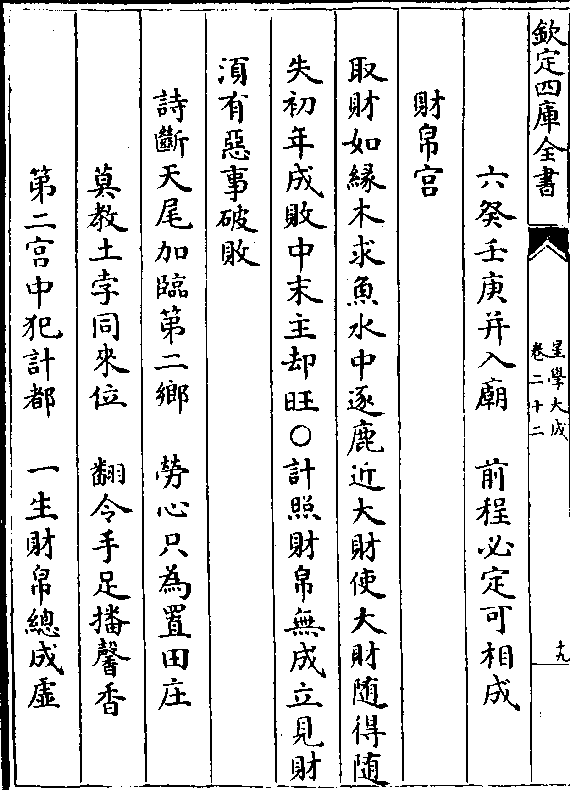 欽定四庫全書
星學大成
卷二十二
十九
六癸壬庚并入廟　前程必定可相成
財帛宮
取財如緣木求魚水中逐鹿近大財使大財随得随
失初年成敗中末主却旺○計照財帛無成立見財
湏有惡事破敗
詩斷天尾加臨第二鄉　勞心只為置田庄
莫教土孛同來位　翻令手足播馨香
第二宮中犯計都　一生財帛總成虚